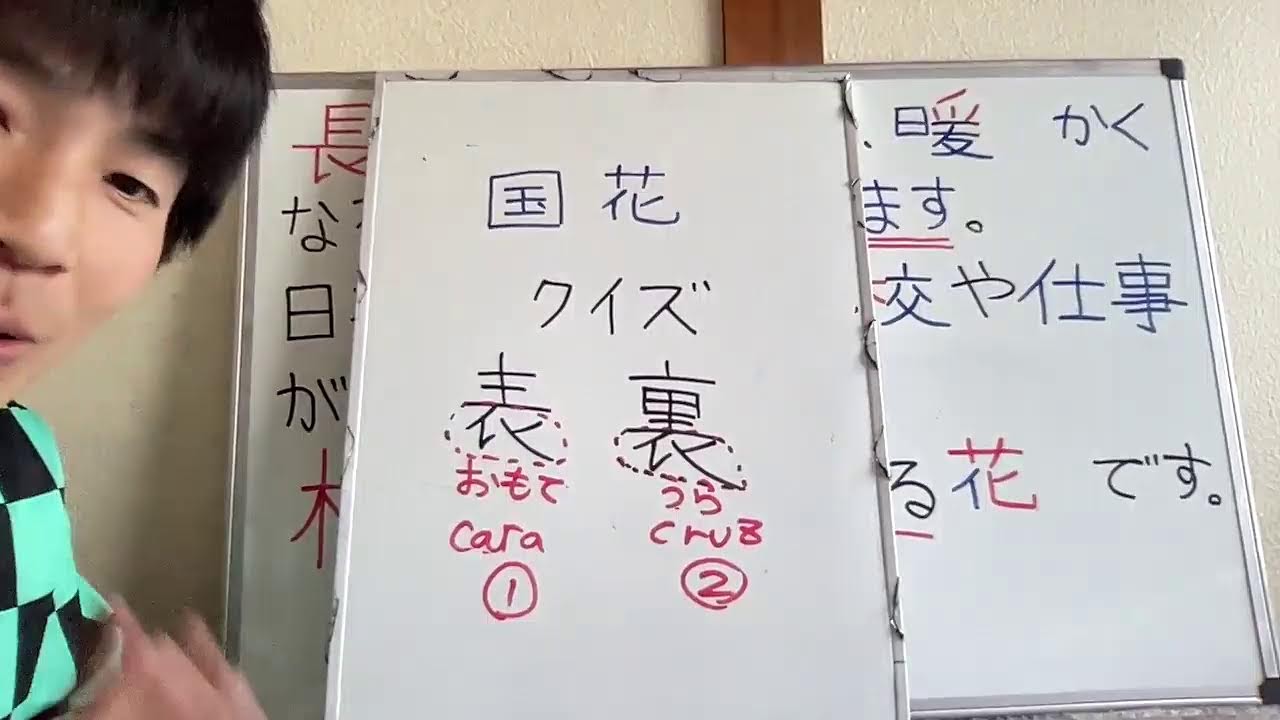 国花
クイズ
表 裏
おもて うら
cara cruz
① ②
長
な
日
が
暖 かく
ます。
交や仕事
る花 です。